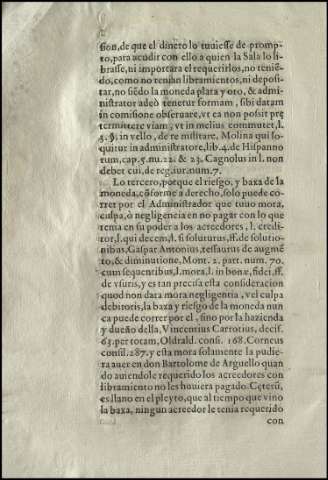 sion, de que el dinero lo tuuiesse de prompto,
para acudir con ello a quien la Sala lo librasse,
ni importara el requerirlos, no teniẽdo,
como no tenian libramientos, ni depositar,
no siẽdo la moneda plata y oro, & administrator
adeò tenetur formam, sibi datam
in comisione obseruare, vt ea non possit prætermittere
viam, vt in melius commutet, l.
3. §. in vello, de re militare, Molina qui sequitur
in administratore, lib. 4. de Hispannorum,
cap. 5. nu. 22. & 23. Cagnolus in l. non
debet cui, de reg. iur. num. 7.
Lo tercero, porque el riesgo, y baxa de la
moneda, cõforme a derecho, solo puede correr
por el Administrador que tuuo mora,
culpa, ò negligencia en no pagar con lo que
tenia en su poder a los acreedores, l. creditor,
l. qui decem, l. si soluturus, ff. de solutionibus.
Gaspar Antonio, tessaurus de augmẽto,
& diminutione, Mont. 2. part. num. 70.
cum sequentibus, l. mora, l. in bonæ, fidei, ff.
de vsuris, y es tan precisa esta consideracion
quod non data mora negligentia, vel culpa
debitoris, la baxa y riesgo de la moneda nunca
puede correr por el, sino por la hazienda
y dueño della, Vincentius Carrotius, decis.
63. per totam, Oldrald. consi. 168. Corneus
consil. 287. y esta mora solamente la pudiera
auer en don Bartolome de Arguello quando
auiendole requerido los acreedores con
libramiento no les huuiera pagado. Ceterũ,
es llano en el pleyto, que al tiempo que vino
la baxa, ningun acreedor le tenia requerido
con